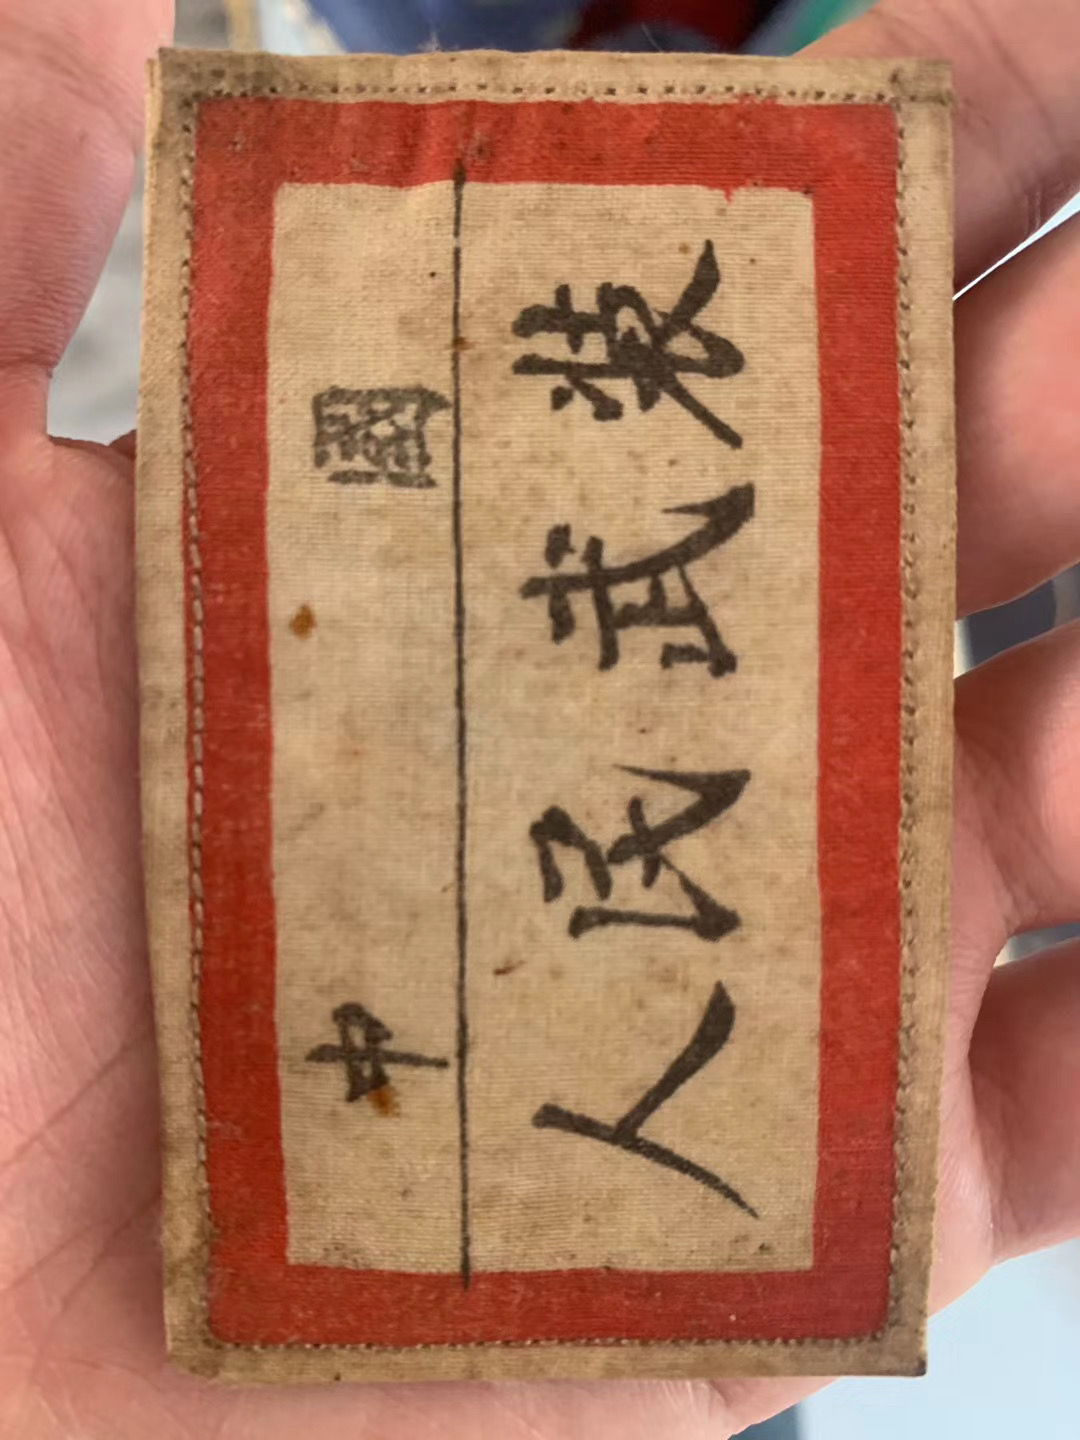 中 國
人民武装